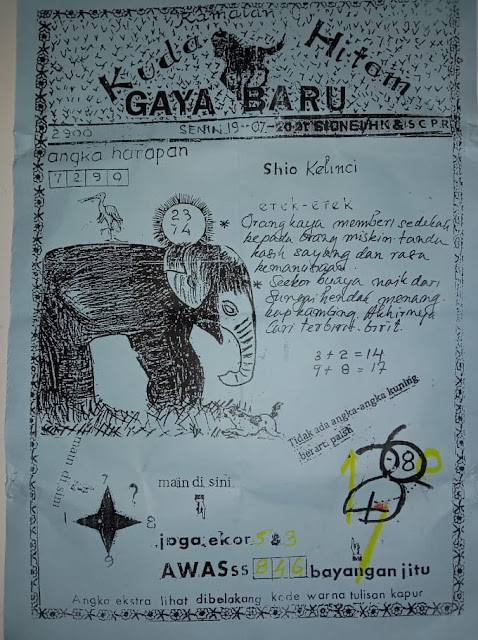 Ramalan
Kuda Hitam
GAYA BARU
2900
SENIN, 19--07--2021 SIDNEI/HK & SCPR
angka harapan
7290
Shio Kelinci
23
74
etek-etek
* Orang kaya memberi sedekah
kepada orang miskin tanda
kasih sayang dan rasa
kemanusiaan
* Seekor buaya naik dari
Sungai hendak menang
kap kambing. Akhirnya
lari terbirit-birit.
3+2=14
9+8=17
Tidak ada angka-angka kuning
berarti palsu
main di sini
7
?
1
8
9
main di sini
1
8
0
joga ekor 5 & 3
AWASss 846 bayangan jitu
Angka ekstra lihat dibelakang kode warna tulisan kapur